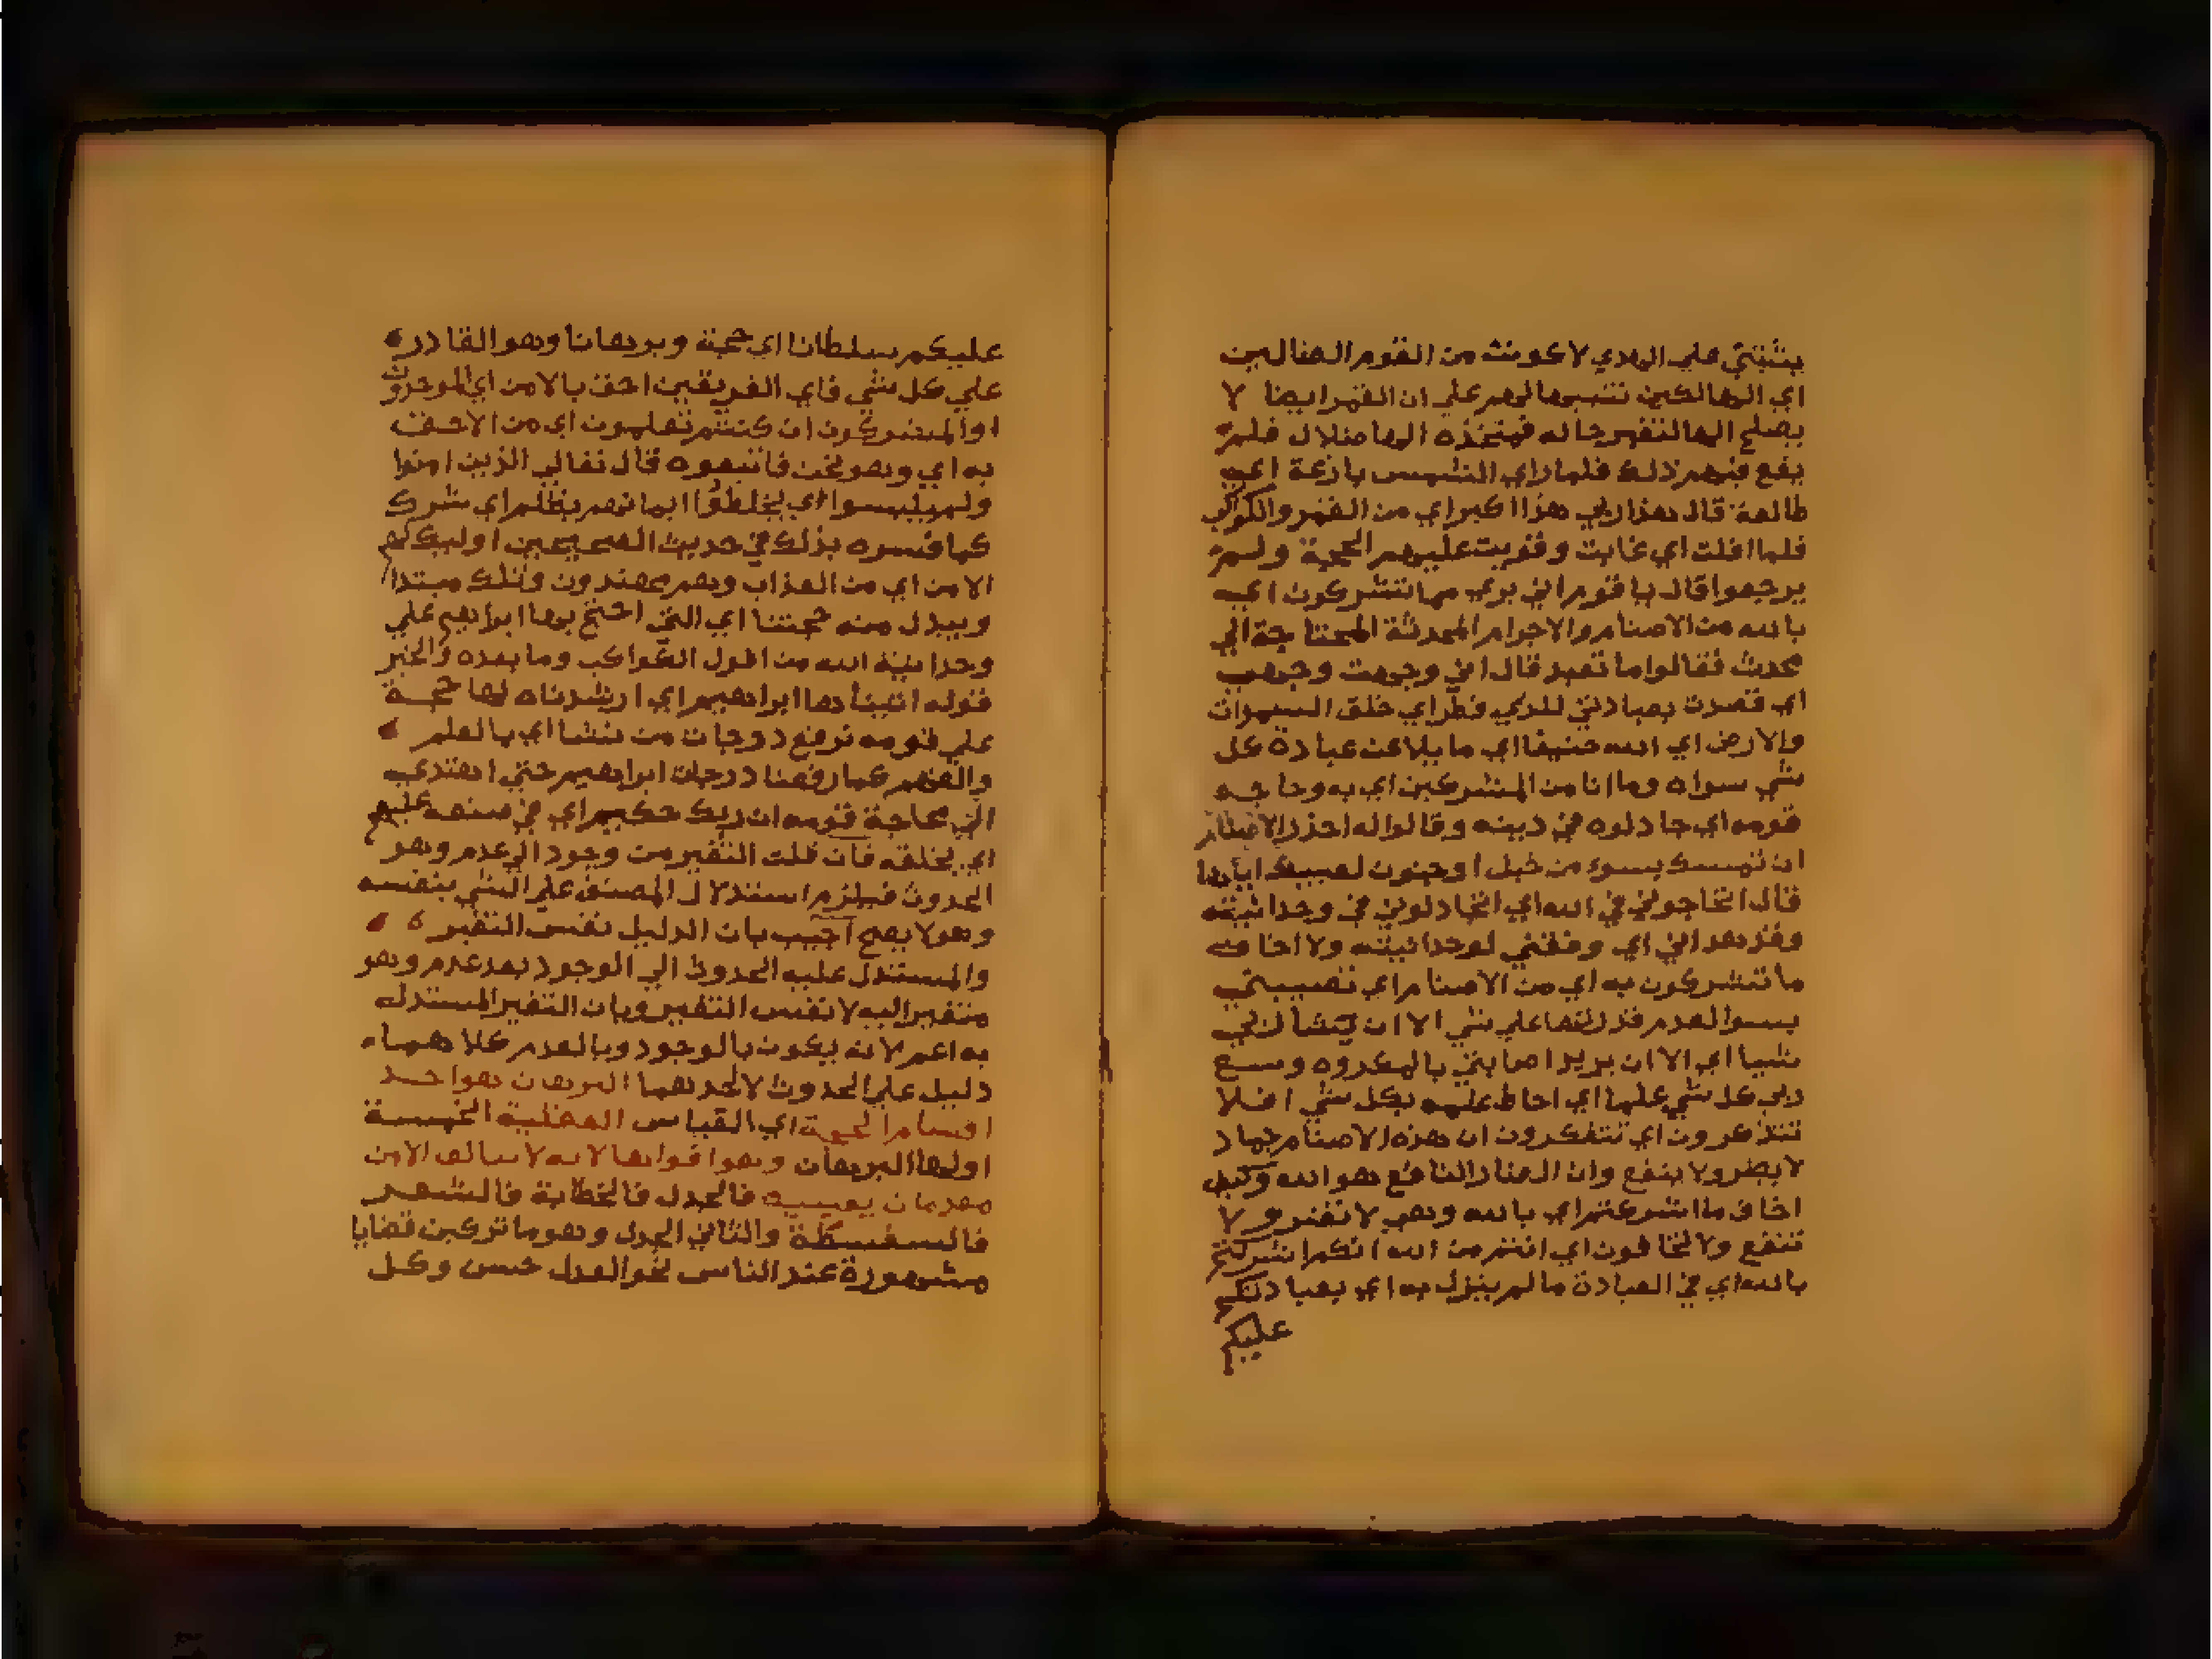 يثبتني علي الهدي لاكونن من القوم الضالين
اي الهالكين تنبيها لهم علي ان القمر ايضا لا
يصلح الها لتغير حاله فمتخذه الها ضلال فلم
يقع فيهم ذلك فلما راي الشمس بازغة اي
طالعة قال هذا ربي هذا اكبر اي من القمر والكوكب
فلما افلت اي غابت وقويت عليهم الحجة ولم
يرجعوا قال يا قوم اني بري مما تشركون اي
بالله من الاصنام والاجرام المحدثة المحتاجة الي
محدث فقالوا ما تعبد قال اني وجهت وجهي
اي قصدت بعبادتي للذي فطر اي خلق السموات
والارض اي الله حنيفا اي مايلا عن عبادة كل
شي سواه وما انا من المشركين اي به وحاجه
قومه اي جادلوه في دينه وقالوا له احذر الاصنام
ان تمسك بسوء من خبل او جنون لعيبك اياها
قال اتحاجوني في الله اي اتجادلوني في وحدانيته
وقد هداني اي وفقني لوحدانيته ولا اخاف
ما تشركون به اي من الاصنام اي تصيبني
بسوء لعدم قدرتها علي شي الا ان يشا ربي
شيا اي الا ان يريد اصابتي بالمكروه وسع
ربي كل شي علما اي احاط علمه بكل شي افلا
تتذكرون اي تتفكرون ان هذه الاصنام جماد
لا يضر ولا ينفع وان الضار النافع هو الله وكيف
اخاف ما اشركتم اي بالله وهي لا تضر ولا
تنفع ولا تخافون اي انتم من الله انكم اشركتم
بالله اي في العبادة ما لم ينزل به اي بعبادتكم
عليكم
عليكم سلطانا اي حجة وبرهانا وهو القادر
علي كل شي فاي الفريقين احق بالامن اي الموحدون
او المشركون ان كنتم تعلمون اي من الاحق
به اي وهو نحن فاتبعوه قال تعالي الذين امنوا
ولم يلبسوا اي يخلطوا ايمانهم بظلم اي شرك
كما فسره بذلك في حديث الصحيحين اوليك لهم
الامن اي من العذاب وهم مهتدون وتلك مبتدا
ويبدل منه حجتنا اي التي احتج بها ابراهيم علي
وحدانية الله من افول الكواكب وما بعده والخبر
قوله اتيناها ابراهيم اي ارشدناه لها حجة
علي قومه نرفع درجات من نشا اي بالعلم
والفهم كما رفعنا درجات ابراهيم حتي اهتدي
الي محاجة قومه ان ربك حكيم اي في صنعه عليم
اي بخلقه فان قلت التغير من وجود الي عدم وهو
الحدوث فيلزم استدلال المصنف علي الشي بنفسه
وهو لا يصح اجيب بان الدليل نفس التغير
والمستدل عليه الحدوث الي الوجود بعد عدم وهو
متغير اليه لا نفس التغير وبان التغير المستدل
به اعم لانه يكون بالوجود وبالعدم كلاهما
دليل علي الحدوث لاحدهما البرهان هو احد
اقسام الحجة اي القياس العقلية الخمسة
اولها البرهان وهو اقواها لانه الامن
يقينية فالجدل فالخطابة فالشعر
فالسفسطة والثاني الجدل وهو ما تركب من قضايا
مشهورة عند الناس نحو العدل حسن وكل